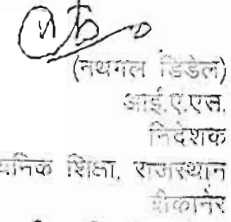 (नथमल डिडेल)
आई.ए.एस.
निदेशक
शिक्षा, राजस्थान
बीकानेर